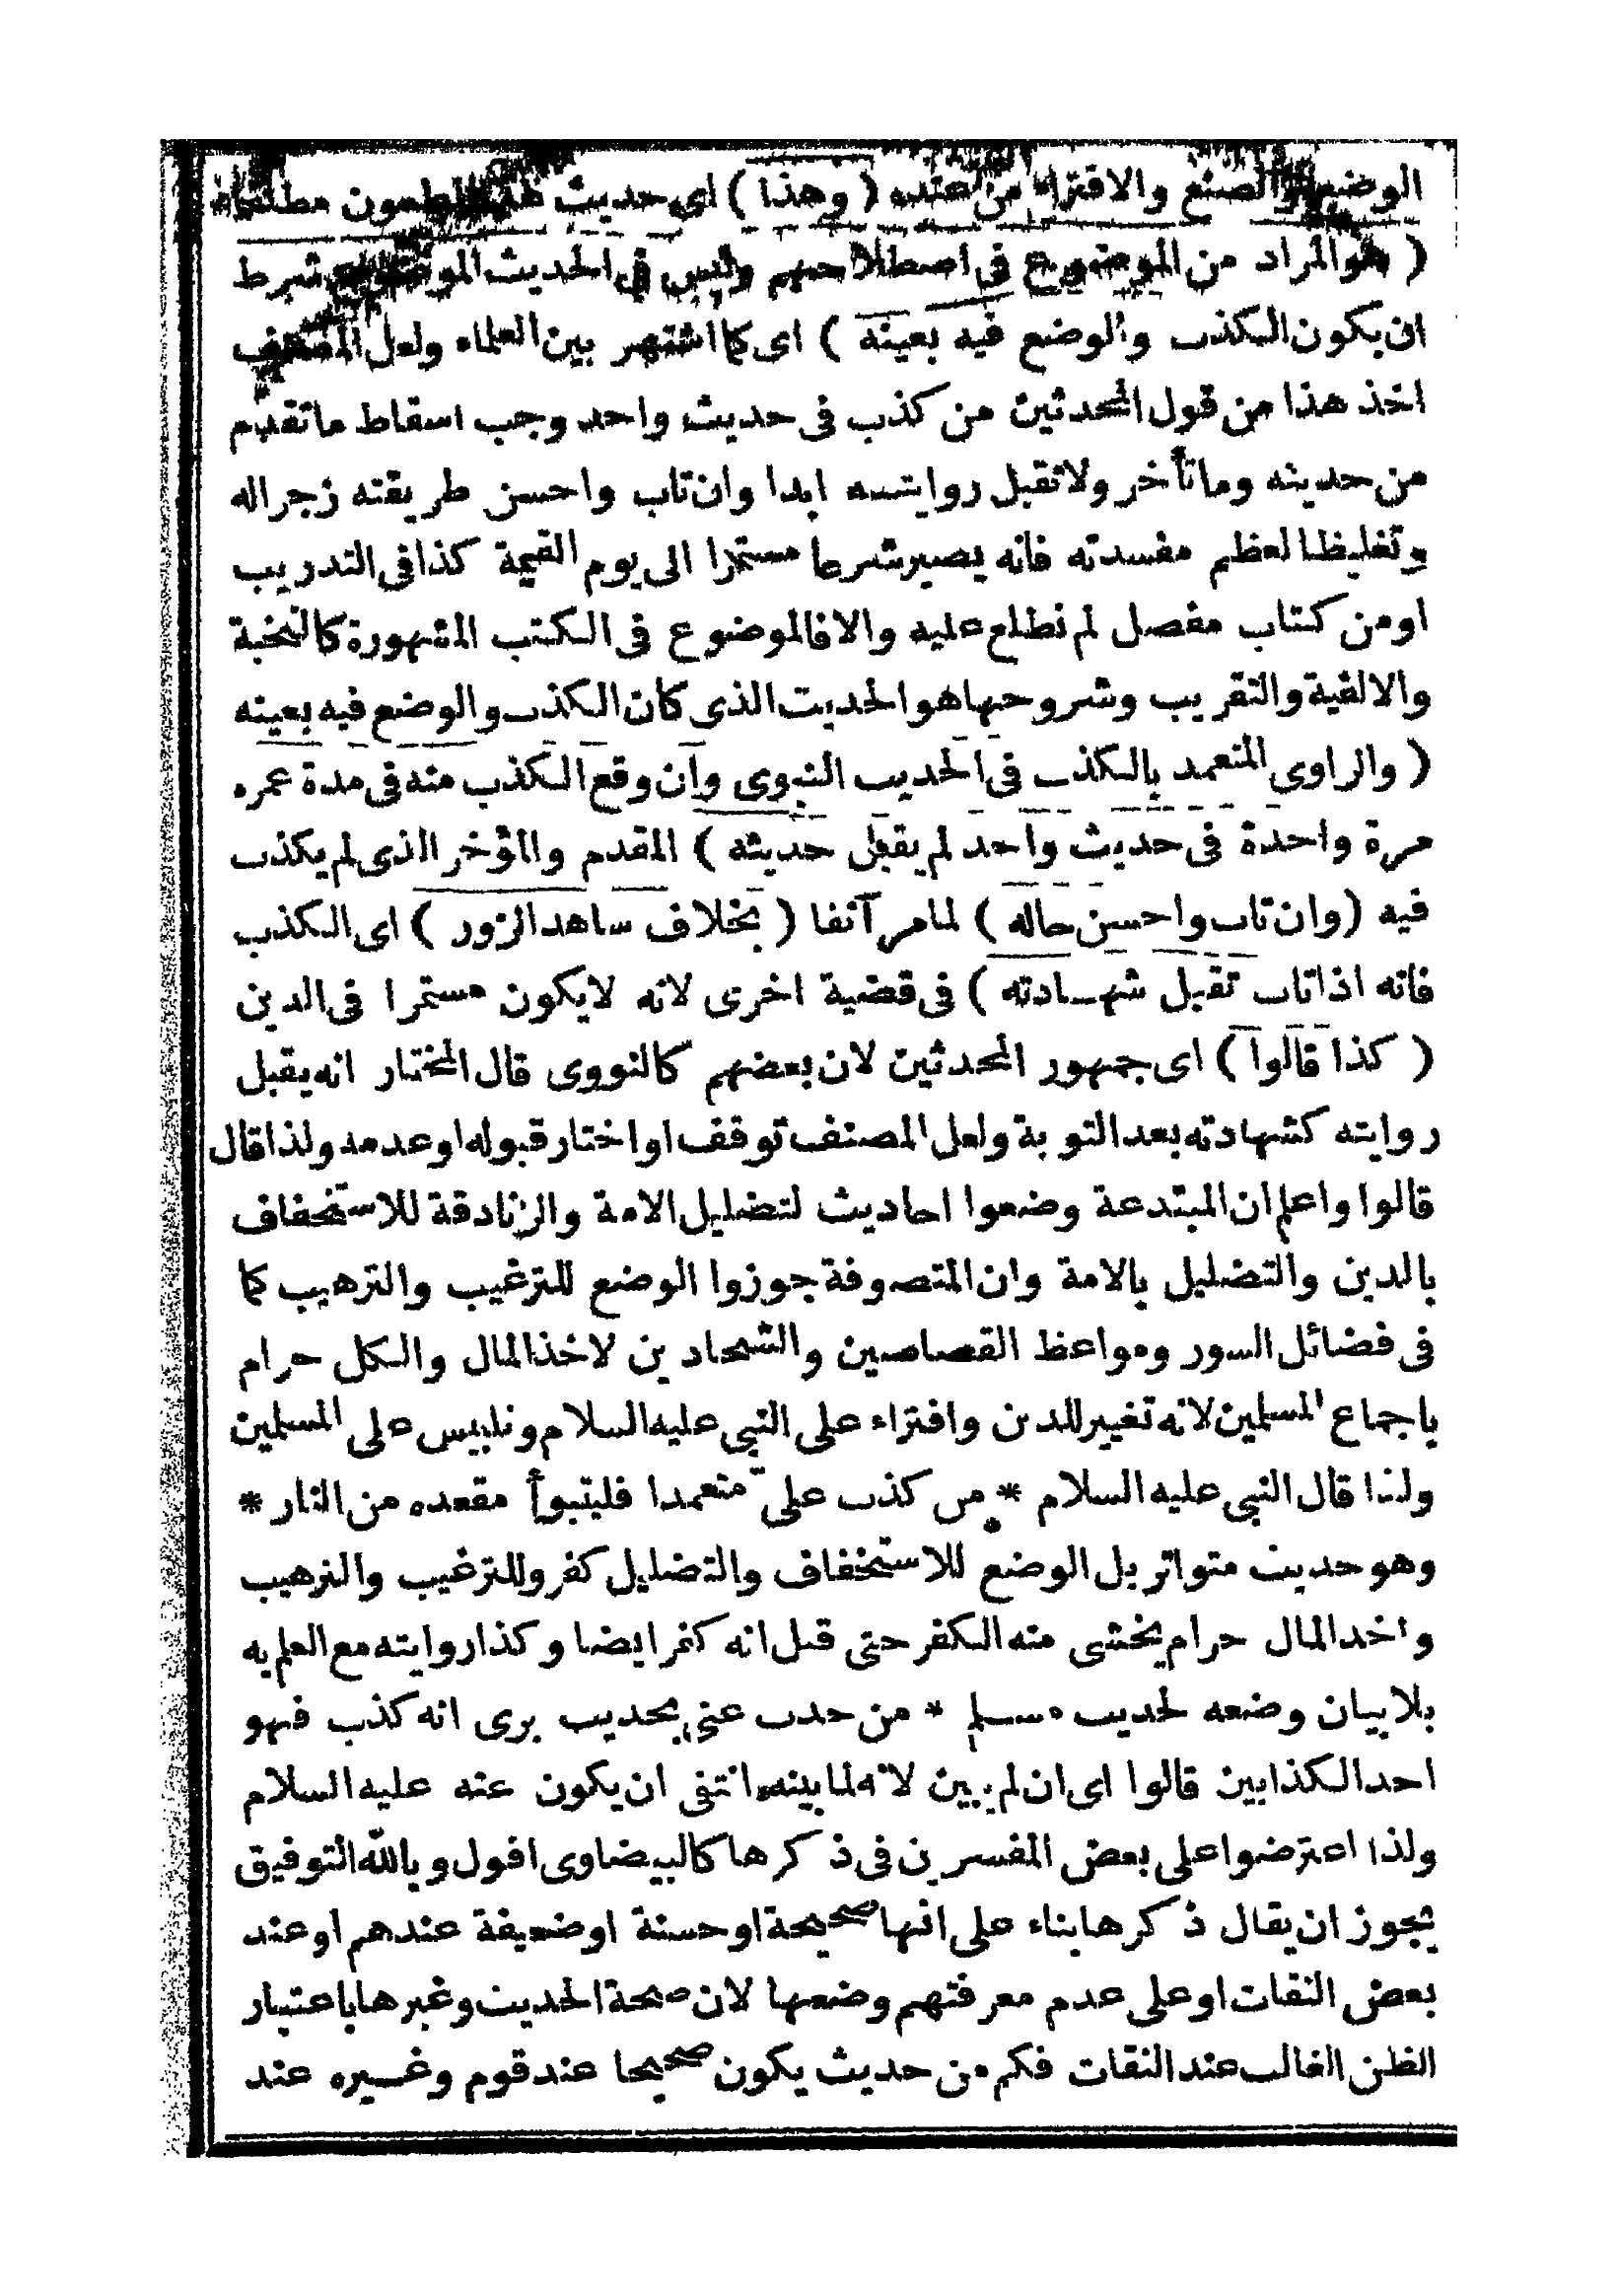 الوضع والصنع والافتراء من عنده ( وهذا ) اى حديث هذا المطعون مطلقا
( هو المراد من الموضوع فى اصطلاحهم وليس فى الحديث الموضوع شرط
ان يكون الكذب والوضع فيه بعينه ) اى كما اشتهر بين العلماء ولعل المصنف
اخذ هذا من قول المحدثين من كذب فى حديث واحد وجب اسقاط ما تقدم
من حديثه وما تأخر ولا تقبل روايته ابدا وان تاب واحسن طريقته زجرا له
وتغليظا لعظم مفسدته فانه يصير شرعا مستمرا الى يوم القيمة كذا فى التدريب
او من كتاب مفصل لم نطلع عليه والا فالموضوع فى الكتب المشهورة كالنخبة
والالفية والتقريب وشروحها هو الحديث الذى كان الكذب والوضع فيه بعينه
( والراوى المتعمد بالكذب فى الحديث النبوى وان وقع الكذب منه فى مدة عمره
مرة واحدة فى حديث واحد لم يقبل حديثه ) المقدم والمؤخر الذى لم يكذب
فيه ( وان تاب واحسن حاله ) لما مر آنفا ( بخلاف شاهد الزور ) اى الكذب
فانه اذا تاب تقبل شهادته ) فى قضية اخرى لانه لا يكون مستمرا فى الدين
( كذا قالوا ) اى جمهور المحدثين لان بعضهم كالنووى قال المختار انه يقبل
روايته كشهادته بعد التوبة ولعل المصنف توقف او اختار قبوله او عدمه ولذا قال
قالوا واعلم ان المبتدعة وضعوا احاديث لتضليل الامة والزنادقة للاستخفاف
بالدين والتضليل بالامة وان المتصوفة جوزوا الوضع للترغيب والترهيب كما
فى فضائل السور ومواعظ القصاصين والشحادين لاخذ المال والكل حرام
باجماع المسلمين لانه تغيير للدين وافتراء على النبى عليه السلام وتلبيس على المسلمين
ولذا قال النبى عليه السلام * من كذب على متعمدا فليتبوأ مقعده من النار *
وهو حديث متواتر بل الوضع للاستخفاف والتضليل كفر وللترغيب والترهيب
واخذ المال حرام يخشى منه الكفر حتى قيل انه كفر ايضا وكذا روايته مع العلم به
بلا بيان وضعه لحديث مسلم * من حدث عنى بحديث يرى انه كذب فهو
احد الكذابين قالوا اى ان لم يبين لانه لما بينه انتفى ان يكون عنه عليه السلام
ولذا اعترضوا على بعض المفسرين فى ذكرها كالبيضاوى اقول وبالله التوفيق
يجوز ان يقال ذكرها بناء على انها صحيحة او حسنة او ضعيفة عندهم او عند
بعض الثقات او على عدم معرفتهم وضعها لان صحة الحديث وغيرها باعتبار
الظن الغالب عند الثقات فكم من حديث يكون صحيحا عند قوم وغيره عند